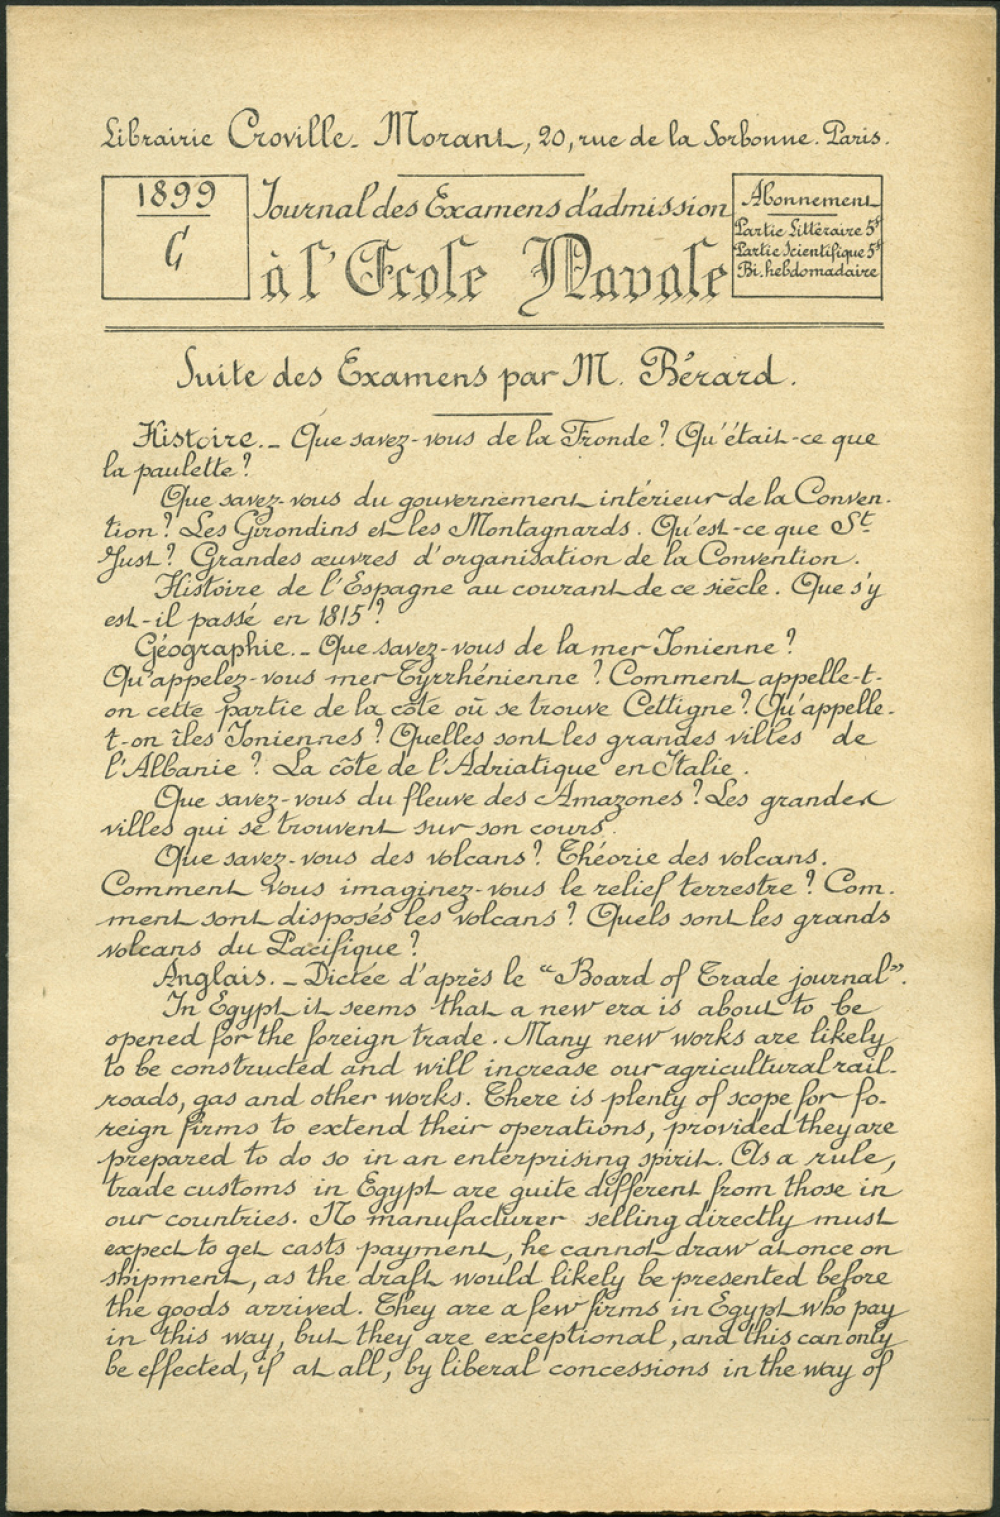 Librairie Croville-Morant, 20, rue de la Sorbonne. Paris.
1899
Journal des Examens d'admission
à l'Ecole Navale
Abonnement
Partie Littéraire 5f
Partie Scientifique 5f
Bi-hebdomadaire
Suite des Examens par M. Bérard.
Histoire. - Que savez-vous de la Fronde ? Qu'était-ce que
la paulette ?
Que savez-vous du gouvernement intérieur de la Conven-
tion ? Les Girondins et les Montagnards. Qu'est-ce que St
Just ? Grandes œuvres d'organisation de la Convention.
Histoire de l'Espagne au courant de ce siècle. Que s'y
est-il passé en 1815 ?
Géographie. - Que savez-vous de la mer Ionienne ?
Qu'appelez-vous mer Tyrrhénienne ? Comment appelle-t-
on cette partie de la côte où se trouve Cettigne ? Qu'appelle-
t-on îles Ioniennes ? Quelles sont les grandes villes de
l'Albanie ? La côte de l'Adriatique en Italie.
Que savez-vous du fleuve des Amazones ? Les grandes
villes qui se trouvent sur son cours.
Que savez-vous des volcans ? Théorie des volcans.
Comment vous imaginez-vous le relief terrestre ? Com-
ment sont disposés les volcans ? Quels sont les grands
volcans du Pacifique ?
Anglais. - Dictée d'après le "Board of Trade journal".
In Egypt it seems that a new era is about to be
opened for the foreign trade. Many new works are likely
to be constructed and will increase our agricultural rail-
roads, gas and other works. There is plenty of scope for fo-
reign firms to extend their operations, provided they are
prepared to do so in an enterprising spirit. As a rule,
trade customs in Egypt are quite different from those in
our countries. No manufacturer selling directly must
expect to get casts payment, he cannot draw at once on
shipment, as the draft would likely be presented before
the goods arrived. They are a few firms in Egypt who pay
in this way, but they are exceptional, and this can only
be effected, if at all, by liberal concessions in the way of